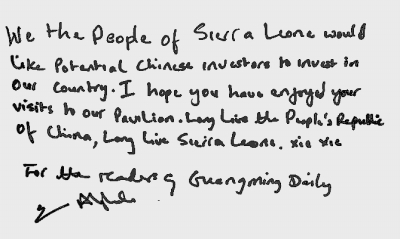 We the People of Sierra Leone would
like Potential Chinese investors to invest in
our country. I hope you have enjoyed your
visits to our Pavilion. Long Live the People's Republic
of China, Long Live Sierra Leone. xie xie
For the readers of Guangming Daily